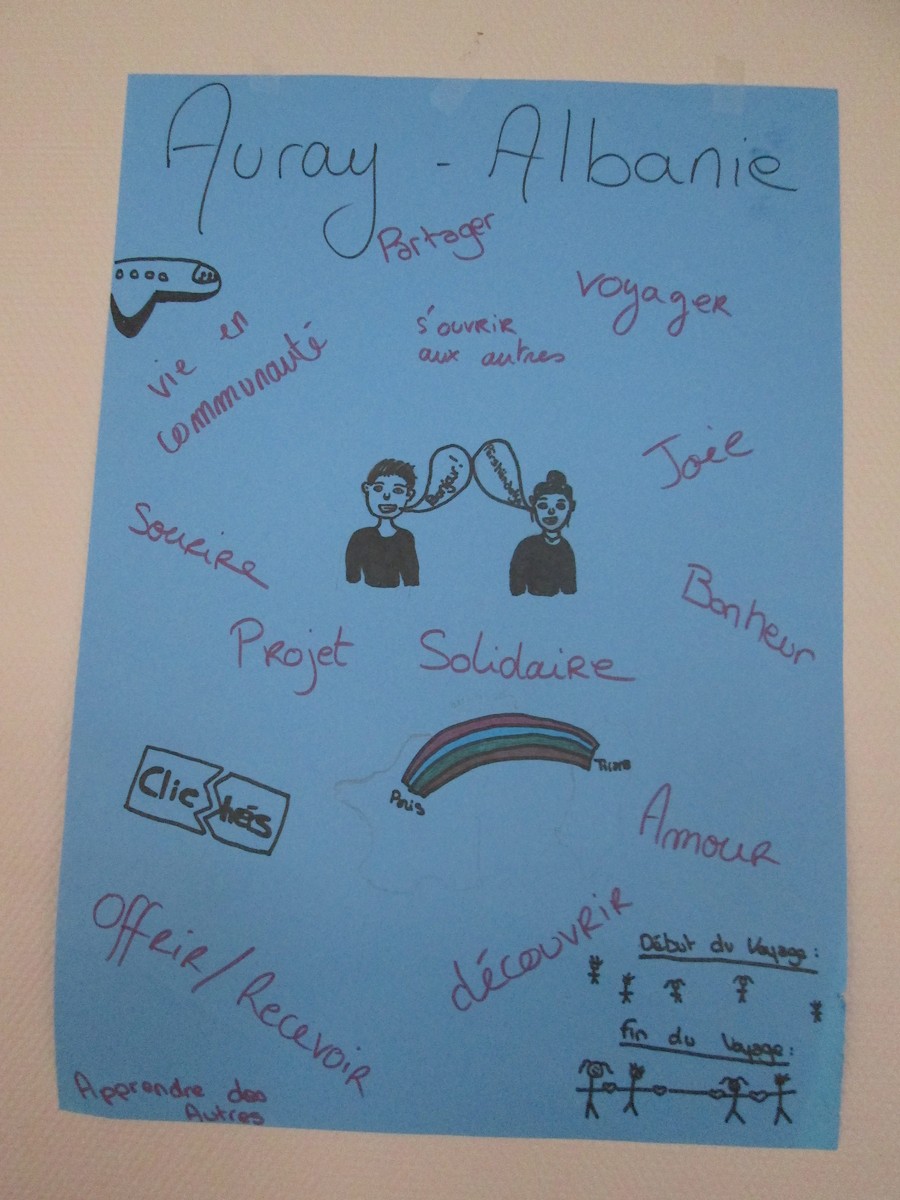 Auray - Albanie
Partager
voyager
vie en
communauté
s'ouvrir
aux autres
Joie
Bonjour!
Sourire
Bonheur
Projet Solidaire
Clichés
Paris
Tirana
Amour
Offrir / Recevoir
découvrir
Début du Voyage:
Fin du Voyage:
Apprendre des
Autres